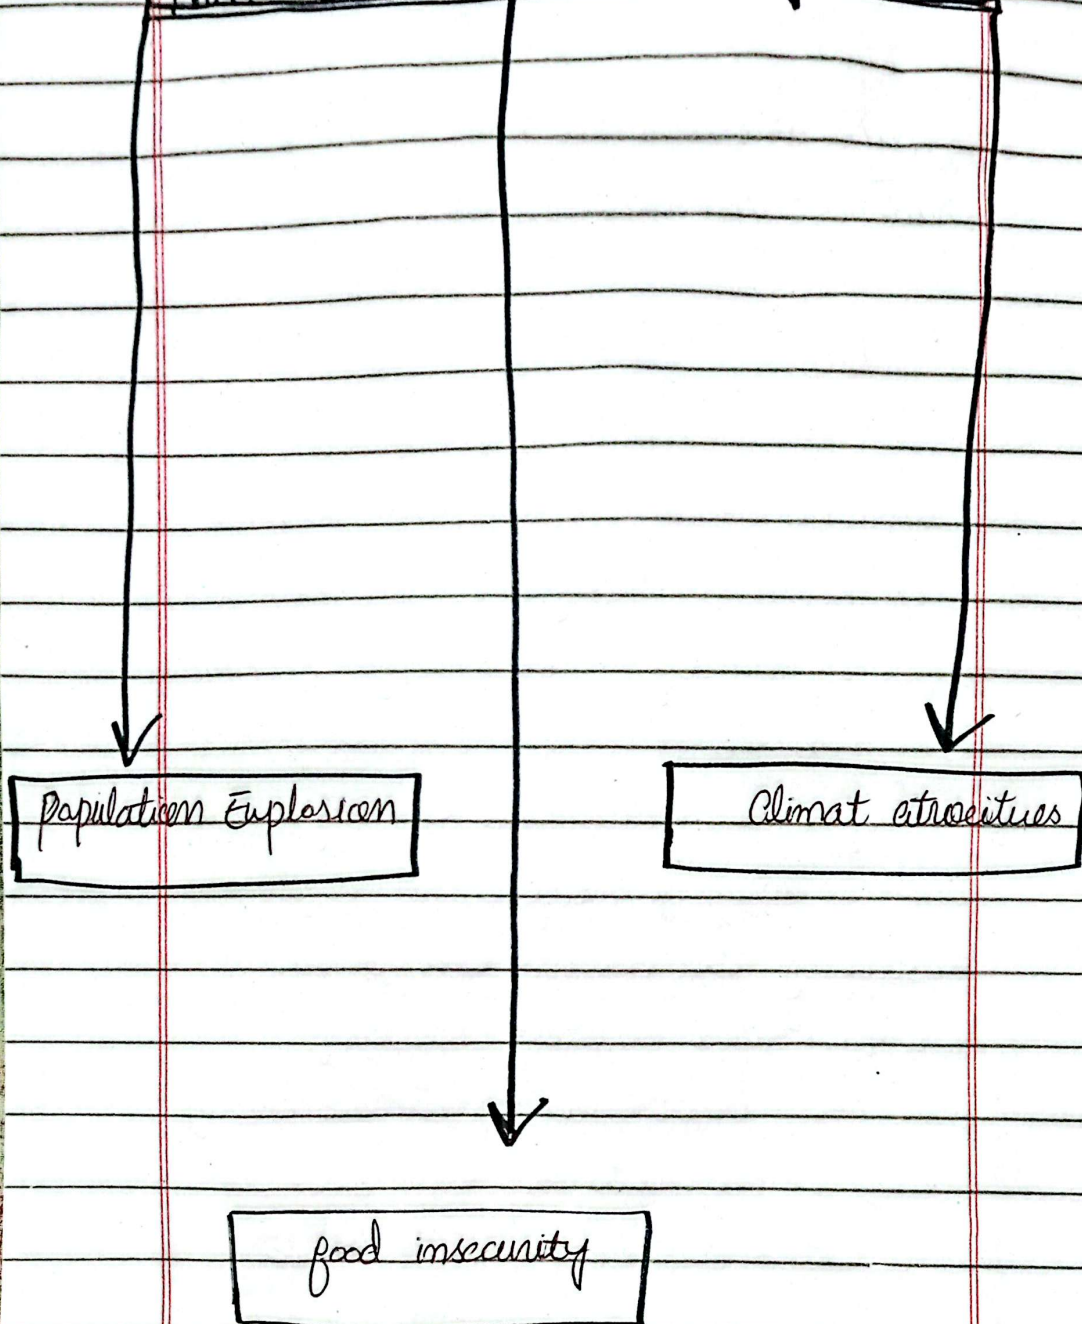 Population Explosion
Climat atrocitues
food insecurity